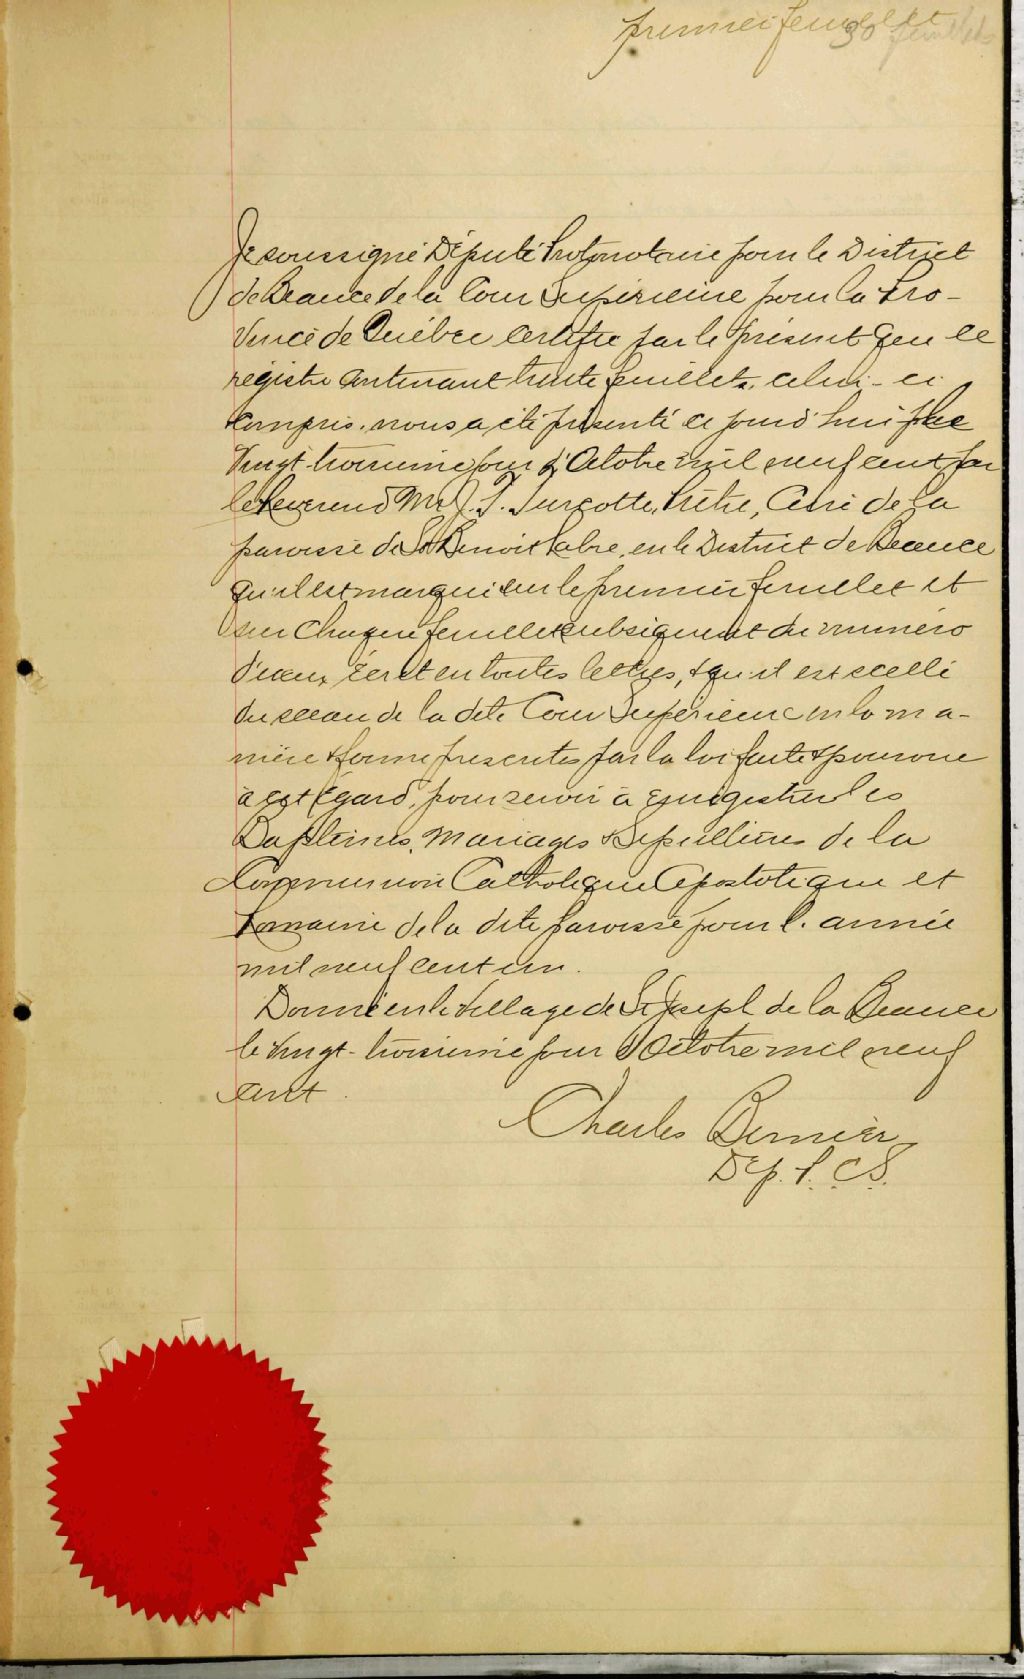 premier feuillet
30 feuillets
Je soussigné Député Protonotaire pour le District
de Beauce de la Cour Superieure pour la Pro-
vince de Québec certifie par le présent que ce
régistre contenant trente feuillets, celui-ci
compris, nous a été présenté ce jourd'hui
Vingt-troisieme jour d'Octobre mil neuf cent par
le Reverend Mr J. T. Turcotte, Prêtre, Curé de la
paroisse de St Benoit Labre, en le District de Beauce
qu'il est marqué sur le premier feuillet et
sur chaque feuillet subséquent du numéro
d'iceux, Ecrit en toutes lettres, & qu'il est scellé
du sceau de la dite Cour Supérieure en la ma-
nière & forme prescrites par la loi faite & pourvue
à cet Égard, pour servir à Enregistrer les
Baptêmes, Mariages & Sepultures de la
Communion Catholique Apostolique et
Romaine de la dite paroisse pour l'année
mil neuf cent un.
Donné en le village de St Joseph de la Beauce
le vingt-troisieme jour d'Octobre mil neuf
cent.
Charles Bernier
Dep. P. C. S.